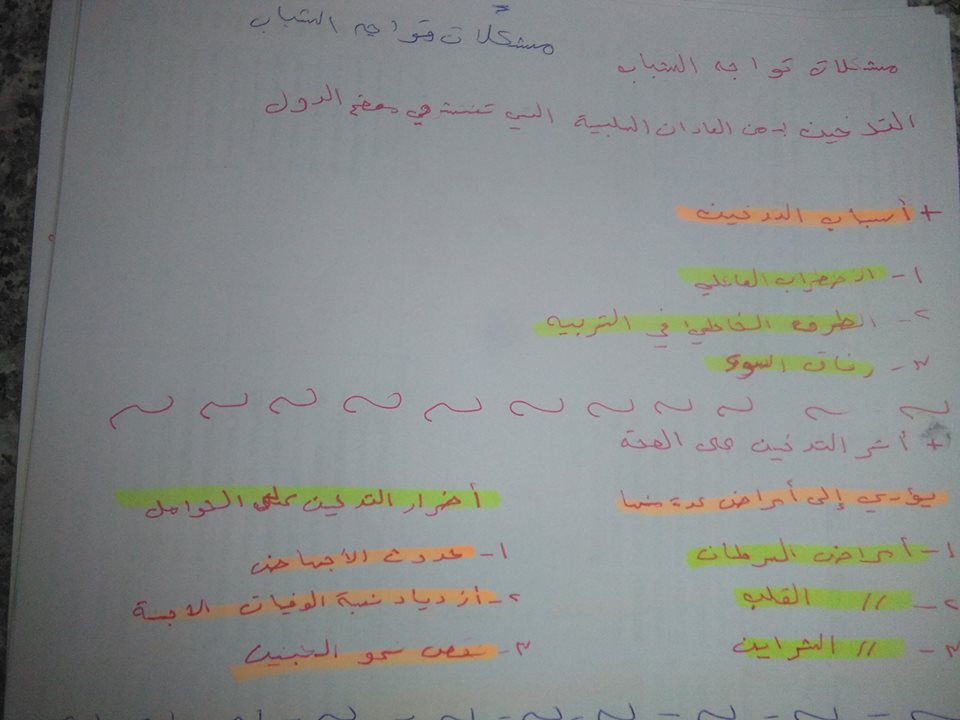 مشكلات تواجه الشباب
مشكلات تواجه الشباب
التدخين :- من العادات السلبية التي تنتشر في بعض الدول
+ أسباب التدخين
١- الاضطراب العائلي
٢- الطرق الخاطئة في التربيه
٣- رفاق السوء
+ أثر التدخين على الصحة
يؤدي إلى أمراض عدة منها
١- أمراض السرطان
٢- // القلب
٣- // الشرايين
أضرار التدخين على الحوامل
١- حدوث الأجهاض
٢- أزدياد نسبة الوفيات الاجنة
٣- نقص نمو الجنين